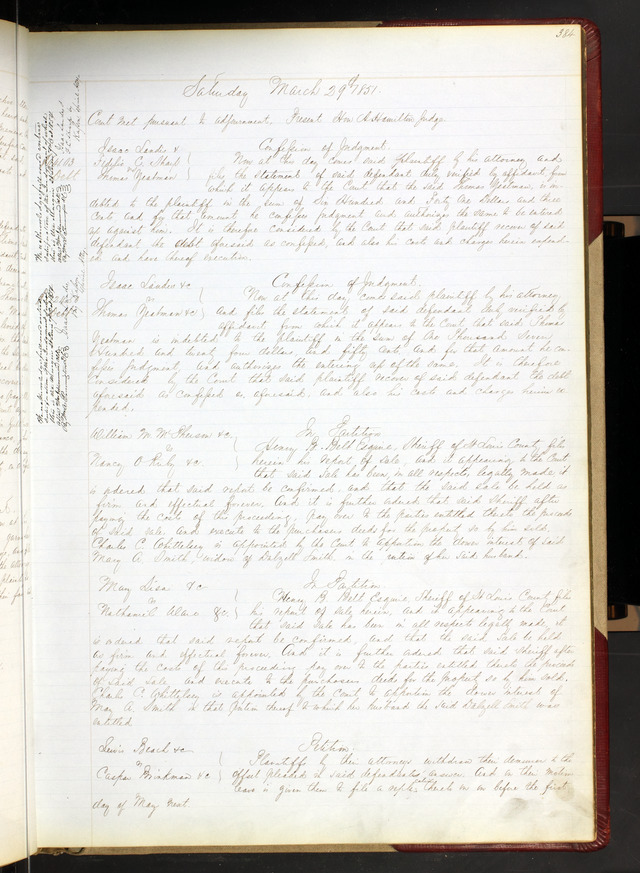 384
Saturday March 29th 1851.
Court met pursuant to adjournment. Present Hon A Hamilton Judge
Isaac Landis & Confession of Judgment.
Now at this day comes said plaintiff by his attorney and
Thomas Yeatman file the Statement of said defendant duly verified by affidavit from
which it appears to the Court that the said Thomas Yeatman, is in-
debted to the plaintiff in the sum of Six Hundred and Forty One Dollars and three
Cents, and for that amount he confesses judgment and authorizes the same to be entered
up against him. It is therefore considered by the Court that said plaintiff recover of said
defendant the debt aforesaid as confessed, and also his costs and charges herein expend-
ed and have thereof execution.
Isaac Landis &c Confession of Judgment.
Now at this day comes said plaintiff by his attorney
Thomas Yeatman &c and file the statement of said defendant duly verified by
affidavit from which it appears to the Court that said Thomas
Yeatman is indebted to the plaintiff in the sum of One Thousand Seven
Hundred and twenty four dollars and fifty cents and for that amount he con-
fesses judgment, and authorizes the entering up of the same. It is therefore
Considered by the Court that said plaintiff recover of said defendant the debt
aforesaid as confessed as aforesaid. and also his costs and charges herein ex-
pended.
William M. McPherson &c. In Partition
vs Henry B. Belt Esquire, Sheriff of St Louis County, files
Nancy O. Ruby &c. herein his report of sale, and it appearing to the Court
that said sale has been in all respects legally made, it
is ordered that said report be confirmed, and that the said Sale be held as
firm and effectual forever. And it is further ordered that said Sheriff after
paying the costs of the proceeding, pay over to the parties entitled thereto the proceeds
of said sale and execute to the purchasers deeds for the property so by him sold.
Charles C. Whittelsey is appointed by the Court to apportion the dower interest of said
Mary A. Smith, widow of Dalzell Smith in the portion of her said husband.
Mary Lisa &c In Partition
vs Henry B Belt Esquire, Sheriff of St Louis County, files
Nathaniel &c. his report of sale herein, and it appearing to the Court
that said sale has been in all respects legally made, it
is ordered that said report be confirmed, and that the said Sale be held
as firm and effectual forever. And it is further ordered that said Sheriff after
paying the costs of the proceeding pay over to the parties entitled thereto the proceeds
of said sale and execute to the purchasers deeds for the property so by him sold.
Charles C. Whittelsey is appointed by the Court to apportion the dower interest of
Mary A. Smith in that portion thereof to which her husband the said Dalzell Smith was
entitled
Lewis Beach &c Petition.
vs Plaintiff by their attorneys withdraw their demurrer to the
Casper Brinkman &c offset pleaded in said defendants answer. And on their motion
leave is given them to file a reply thereto on or before the first
day of May next